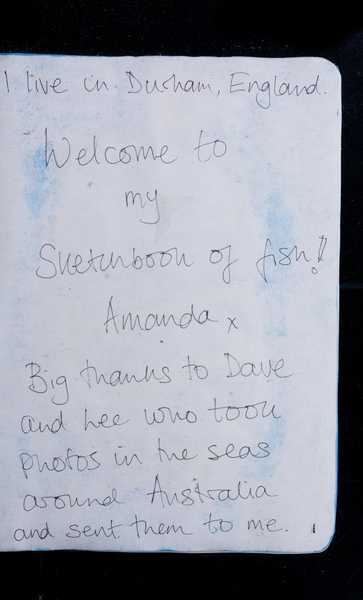 I live in Durham, England.
Welcome to
my
Sketchbook of fish!!
Amanda x
Big thanks to Dave
and Lee who took
photos in the seas
around Australia
and sent them to me.